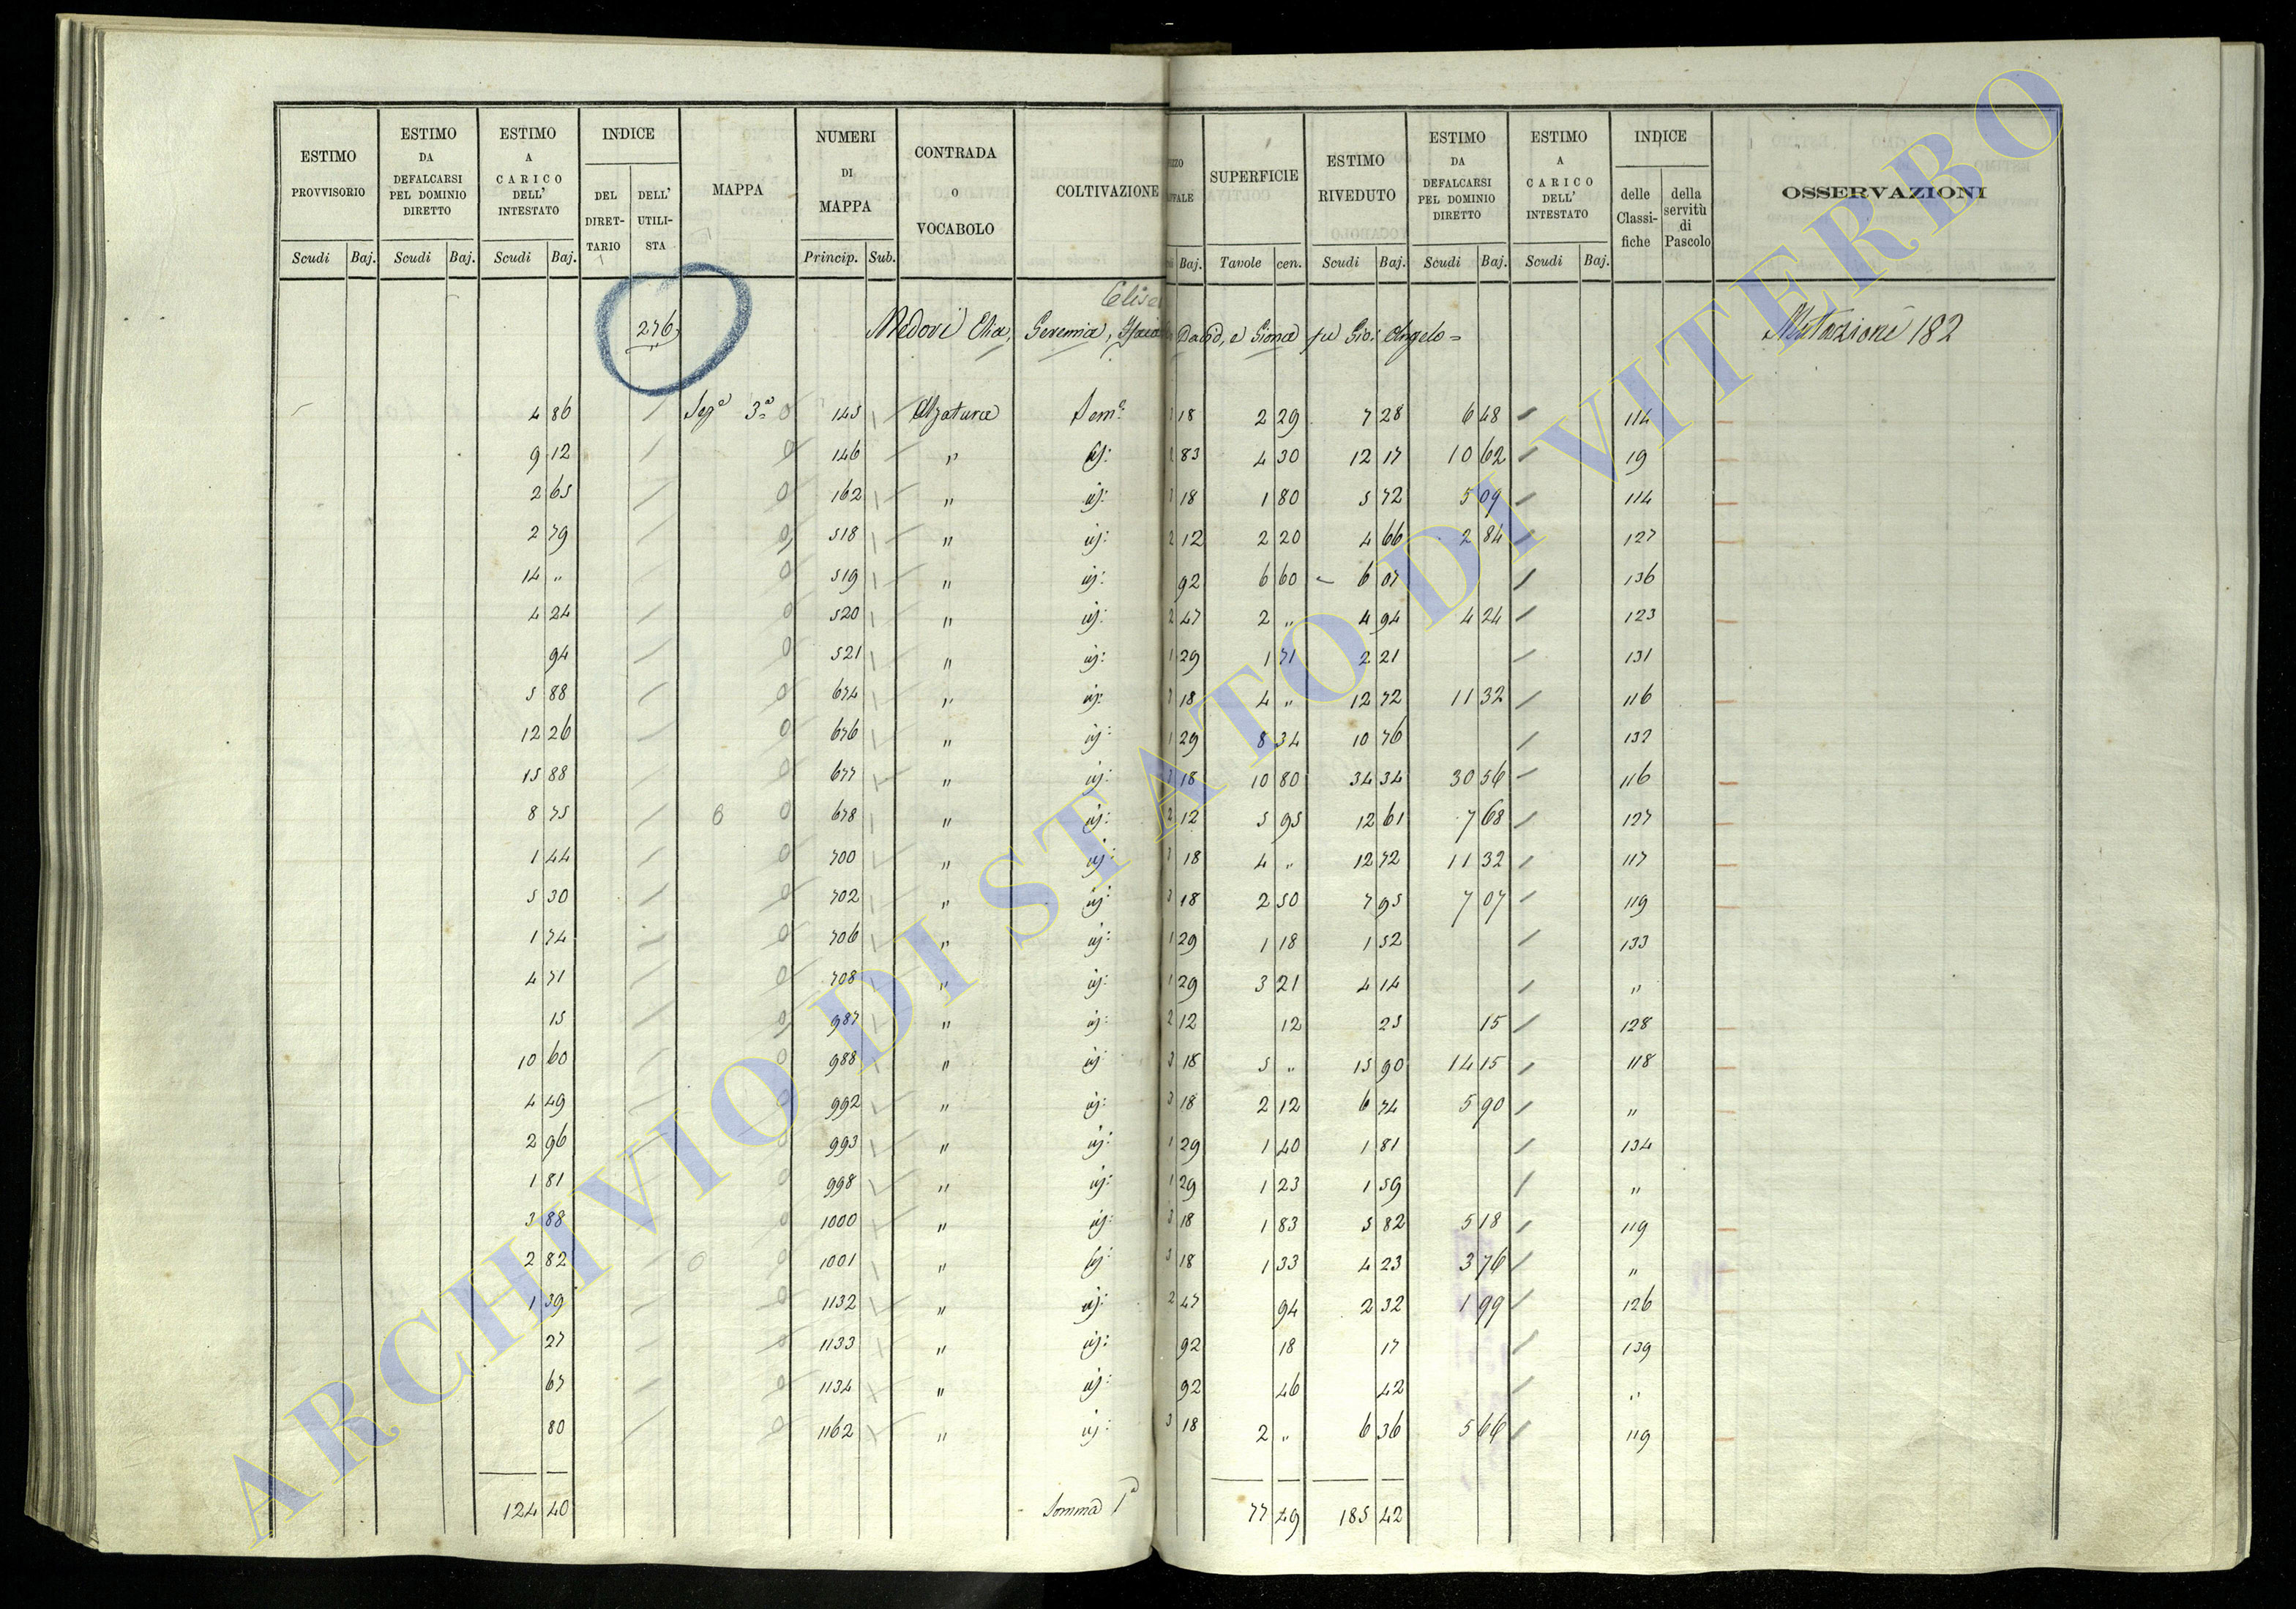 ESTIMO PROVVISORIO | ESTIMO DA DEFALCARSI PEL DOMINIO DIRETTO | ESTIMO A CARICO DELL' INTESTATO | INDICE | MAPPA | NUMERI DI MAPPA | CONTRADA O VOCABOLO | COLTIVAZIONE | SUPERFICIE | ESTIMO RIVEDUTO | ESTIMO DA DEFALCARSI PEL DOMINIO DIRETTO | ESTIMO A CARICO DELL' INTESTATO | INDICE | OSSERVAZIONI
DEL DIRETTARIO | DELL' UTILISTA | delle Classifiche | della servitù di Pascolo
Scudi | Baj. | Scudi | Baj. | Scudi | Baj. | Princip. | Sub. | Baj. | Tavole | cen. | Scudi | Baj. | Scudi | Baj. | Scudi | Baj.
276 Elia, Geremia, David, e Giona fu Gio: Angelo = Mutazione 182
4 86 Sez.e 3.a 0 145 Alzatura Sem.o 3 18 2 29 7 28 6 48 114
9 12 0 146 " id: 2 83 4 30 12 17 10 62 19
2 65 0 162 " id: 3 18 1 80 5 72 5 09 114
2 79 0 518 " id: 2 12 2 20 4 66 2 84 127
14 " 0 519 " id: 92 6 60 6 07 136
4 24 0 520 " id: 2 47 2 " 4 94 4 24 123
94 0 521 " id: 1 29 1 71 2 21 131
5 88 0 674 " id: 3 18 4 " 12 72 11 32 116
12 26 0 676 " id: 1 29 8 34 10 76 132
15 88 0 677 " id: 3 18 10 80 34 34 30 56 116
8 75 6 0 678 " id: 2 12 5 95 12 61 7 68 127
1 44 0 700 " id: 3 18 4 " 12 72 11 32 117
5 30 0 702 " id: 3 18 2 50 7 95 7 07 119
1 74 0 706 " id: 1 29 1 18 1 52 133
4 71 0 708 " id: 1 29 3 21 4 14 "
15 0 987 " id: 2 12 12 25 15 128
10 60 0 988 " id: 3 18 5 " 15 90 14 15 118
4 49 0 992 " id: 3 18 2 12 6 74 5 90 "
2 96 0 993 " id: 1 29 1 40 1 81 134
1 81 0 998 " id: 1 29 1 23 1 59 "
3 88 0 1000 " id: 3 18 1 83 5 82 5 18 119
2 82 0 0 1001 " id: 3 18 1 33 4 23 3 76 "
1 39 0 1132 " id: 2 47 94 2 32 1 99 126
27 0 1133 " id: 92 18 17 139
67 0 1134 " id: 92 46 42 "
80 0 1162 " id: 3 18 2 " 6 36 5 66 119
124 40 Somma 1a 77 49 185 42
ARCHIVIO DI STATO DI VITERBO